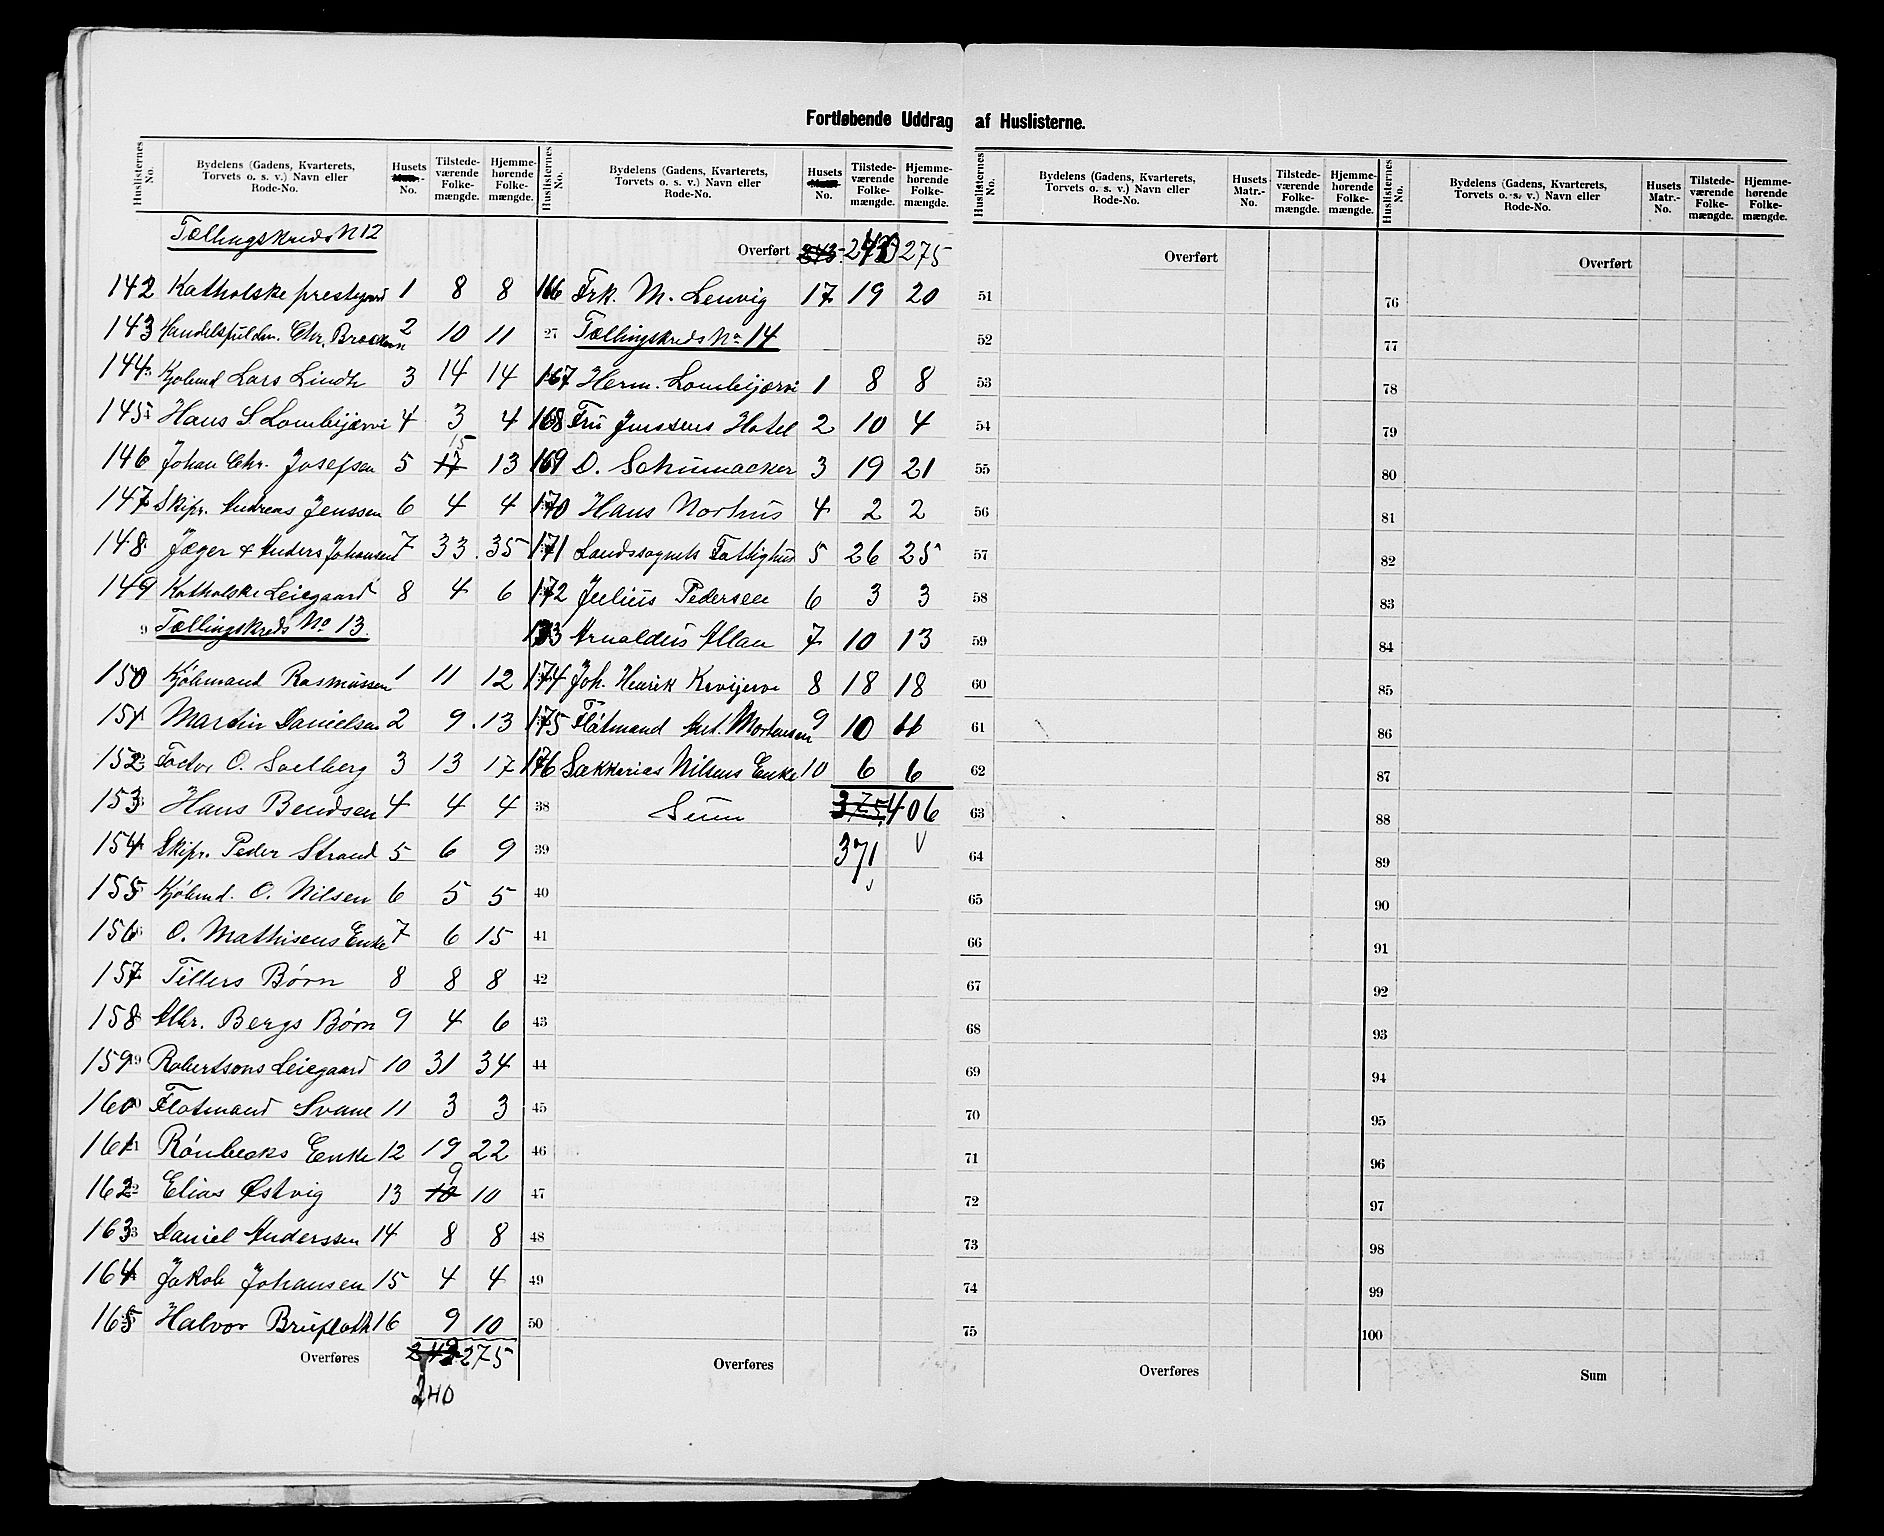 Fortløbende Uddrag af Huslisterne.
Huslisternes No. Bydelens (Gadens, Kvarterets, Torvets o. s. v.) Navn eller Rode-No. Husets Matr.-No. Tilstede-værende Folke-mængde. Hjemme-hørende Folke-mængde.
Tællingskreds N 12
142 Katholske prestegaard 1 8 8
143 Chr. 2 10 11
144 Kjøbmd Lars Lindh 3 14 14
145 Hans S. Lombijærvi 4 3 4
146 Johan Chr. Josefsen 5 17 15 13
147 Skipr. Andreas Jenssen 6 4 4
148 Jæger & Anders Johansen 7 33 35
149 Katholske Leiegaard 8 4 6
9 Tællingskreds No 13.
150 Kjøbmand Rasmussen 1 11 12
151 Martin Danielsen 2 9 13
152 Factor O. Soelberg 3 13 17
153 Hans Bendsen 4 4 4
154 Skipr. Peder Strand 5 6 9
155 Kjøbmd. O. Nilsen 6 5 5
156 O. Mathisens Enke 7 6 15
157 Tillers Børn 8 8 8
158 Bergs Børn 9 4 6
159 Robertsons Leiegaard 10 31 34
160 Flotmand Svane 11 3 3
161 Rønbecks Enke 12 19 22
162 Elias Østvig 13 10 9 10
163 Daniel Anderssen 14 8 8
164 Jakob Johansen 15 4 4
165 Halvor 16 9 10
Overføres 275
240
Huslisternes No. Bydelens (Gadens, Kvarterets, Torvets o. s. v.) Navn eller Rode-No. Husets Matr.-No. Tilstede-værende Folke-mængde. Hjemme-hørende Folke-mængde.
Overført 243 240 275
166 Frk. M. Lenvig 17 19 20
27 Tællingskreds No 14
167 Herm. Lombijærvi 1 8 8
168 Fru Jenssens Hotel 2 10 4
169 D. Schumacker 3 19 21
170 Hans Norhus 4 2 2
171 Landssognets Fattighus 5 26 25
172 Julius Pedersen 6 3 3
173 Arnoldus Allan 7 10 13
174 Joh. Henrik 8 18 18
175 Flåtmand Mortensen 9 10 11
176 Sakkarias Nilsens Enke 10 6 6
38 Sum 375 406
39 371
40
41
42
43
44
45
46
47
48
49
50
Overføres
Huslisternes No. Bydelens (Gadens, Kvarterets, Torvets o. s. v.) Navn eller Rode-No. Husets Matr.-No. Tilstede-værende Folke-mængde. Hjemme-hørende Folke-mængde.
Overført
51
52
53
54
55
56
57
58
59
60
61
62
63
64
65
66
67
68
69
70
71
72
73
74
75
Overføres
Huslisternes No. Bydelens (Gadens, Kvarterets, Torvets o. s. v.) Navn eller Rode-No. Husets Matr.-No. Tilstede-værende Folke-mængde. Hjemme-hørende Folke-mængde.
Overført
76
77
78
79
80
81
82
83
84
85
86
87
88
89
90
91
92
93
94
95
96
97
98
99
100
Sum